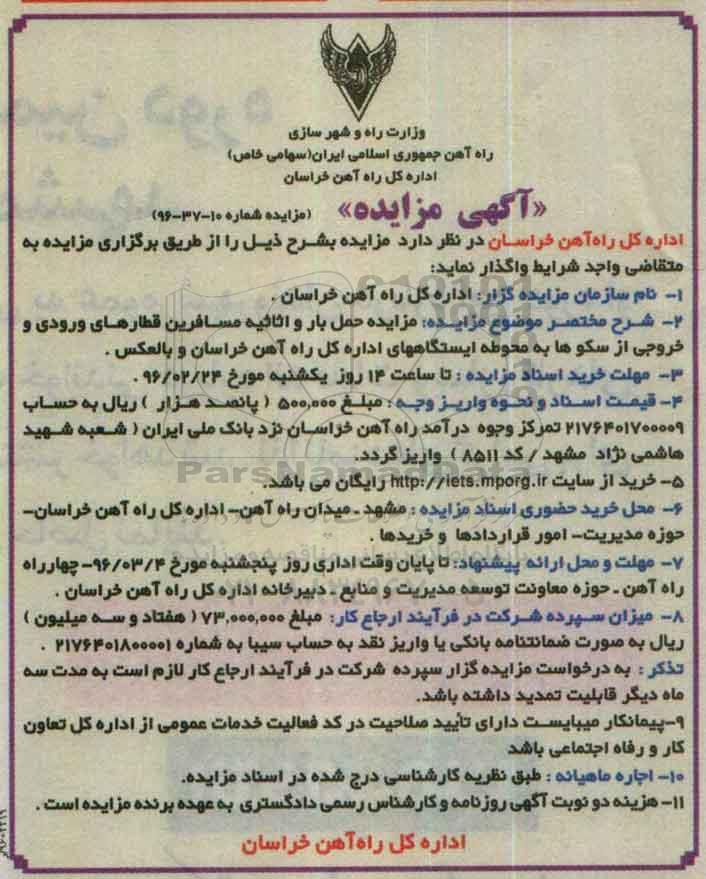 وزارت راه و شهر سازی
راه آهن جمهوری اسلامی ایران(سهامی خاص)
اداره کل راه آهن خراسان
«آگهی مزایده» (مزایده شماره ۱۰-۳۷-۹۶)
اداره کل راه‌آهن خراسان در نظر دارد مزایده بشرح ذیل را از طریق برگزاری مزایده به
متقاضی واجد شرایط واگذار نماید:
۱- نام سازمان مزایده گزار: اداره کل راه آهن خراسان .
۲- شرح مختصر موضوع مزایده: مزایده حمل بار و اثاثیه مسافرین قطارهای ورودی و
خروجی از سکو ها به محوطه ایستگاههای اداره کل راه آهن خراسان و بالعکس .
۳- مهلت خرید اسناد مزایده : تا ساعت ۱۴ روز یکشنبه مورخ ۹۶/۰۲/۲۴ .
۴- قیمت اسناد و نحوه واریز وجه : مبلغ ۵۰۰,۰۰۰ ( پانصد هزار ) ریال به حساب
۲۱۷۶۴۰۱۷۰۰۰۰۹ تمرکز وجوه درآمد راه آهن خراسان نزد بانک ملی ایران ( شعبه شهید
هاشمی نژاد مشهد / کد ۸۵۱۱ ) واریز گردد.
۵- خرید از سایت http://iets.mporg.ir رایگان می باشد.
۶- محل خرید حضوری اسناد مزایده : مشهد ـ میدان راه آهن- اداره کل راه آهن خراسان-
حوزه مدیریت- امور قراردادها و خریدها .
۷- مهلت و محل ارائه پیشنهاد: تا پایان وقت اداری روز پنجشنبه مورخ ۹۶/۰۳/۴- چهارراه
راه آهن ـ حوزه معاونت توسعه مدیریت و منابع ـ دبیرخانه اداره کل راه آهن خراسان .
۸- میزان سپرده شرکت در فرآیند ارجاع کار: مبلغ ۷۳,۰۰۰,۰۰۰ ( هفتاد و سه میلیون )
ریال به صورت ضمانتنامه بانکی یا واریز نقد به حساب سیبا به شماره ۲۱۷۶۴۰۱۸۰۰۰۰۱ .
تذکر : به درخواست مزایده گزار سپرده شرکت در فرآیند ارجاع کار لازم است به مدت سه
ماه دیگر قابلیت تمدید داشته باشد.
۹-پیمانکار میبایست دارای تأیید صلاحیت در کد فعالیت خدمات عمومی از اداره کل تعاون
کار و رفاه اجتماعی باشد
۱۰- اجاره ماهیانه : طبق نظریه کارشناسی درج شده در اسناد مزایده.
۱۱- هزینه دو نوبت آگهی روزنامه و کارشناس رسمی دادگستری به عهده برنده مزایده است .
اداره کل راه‌آهن خراسان
ParsNamadData